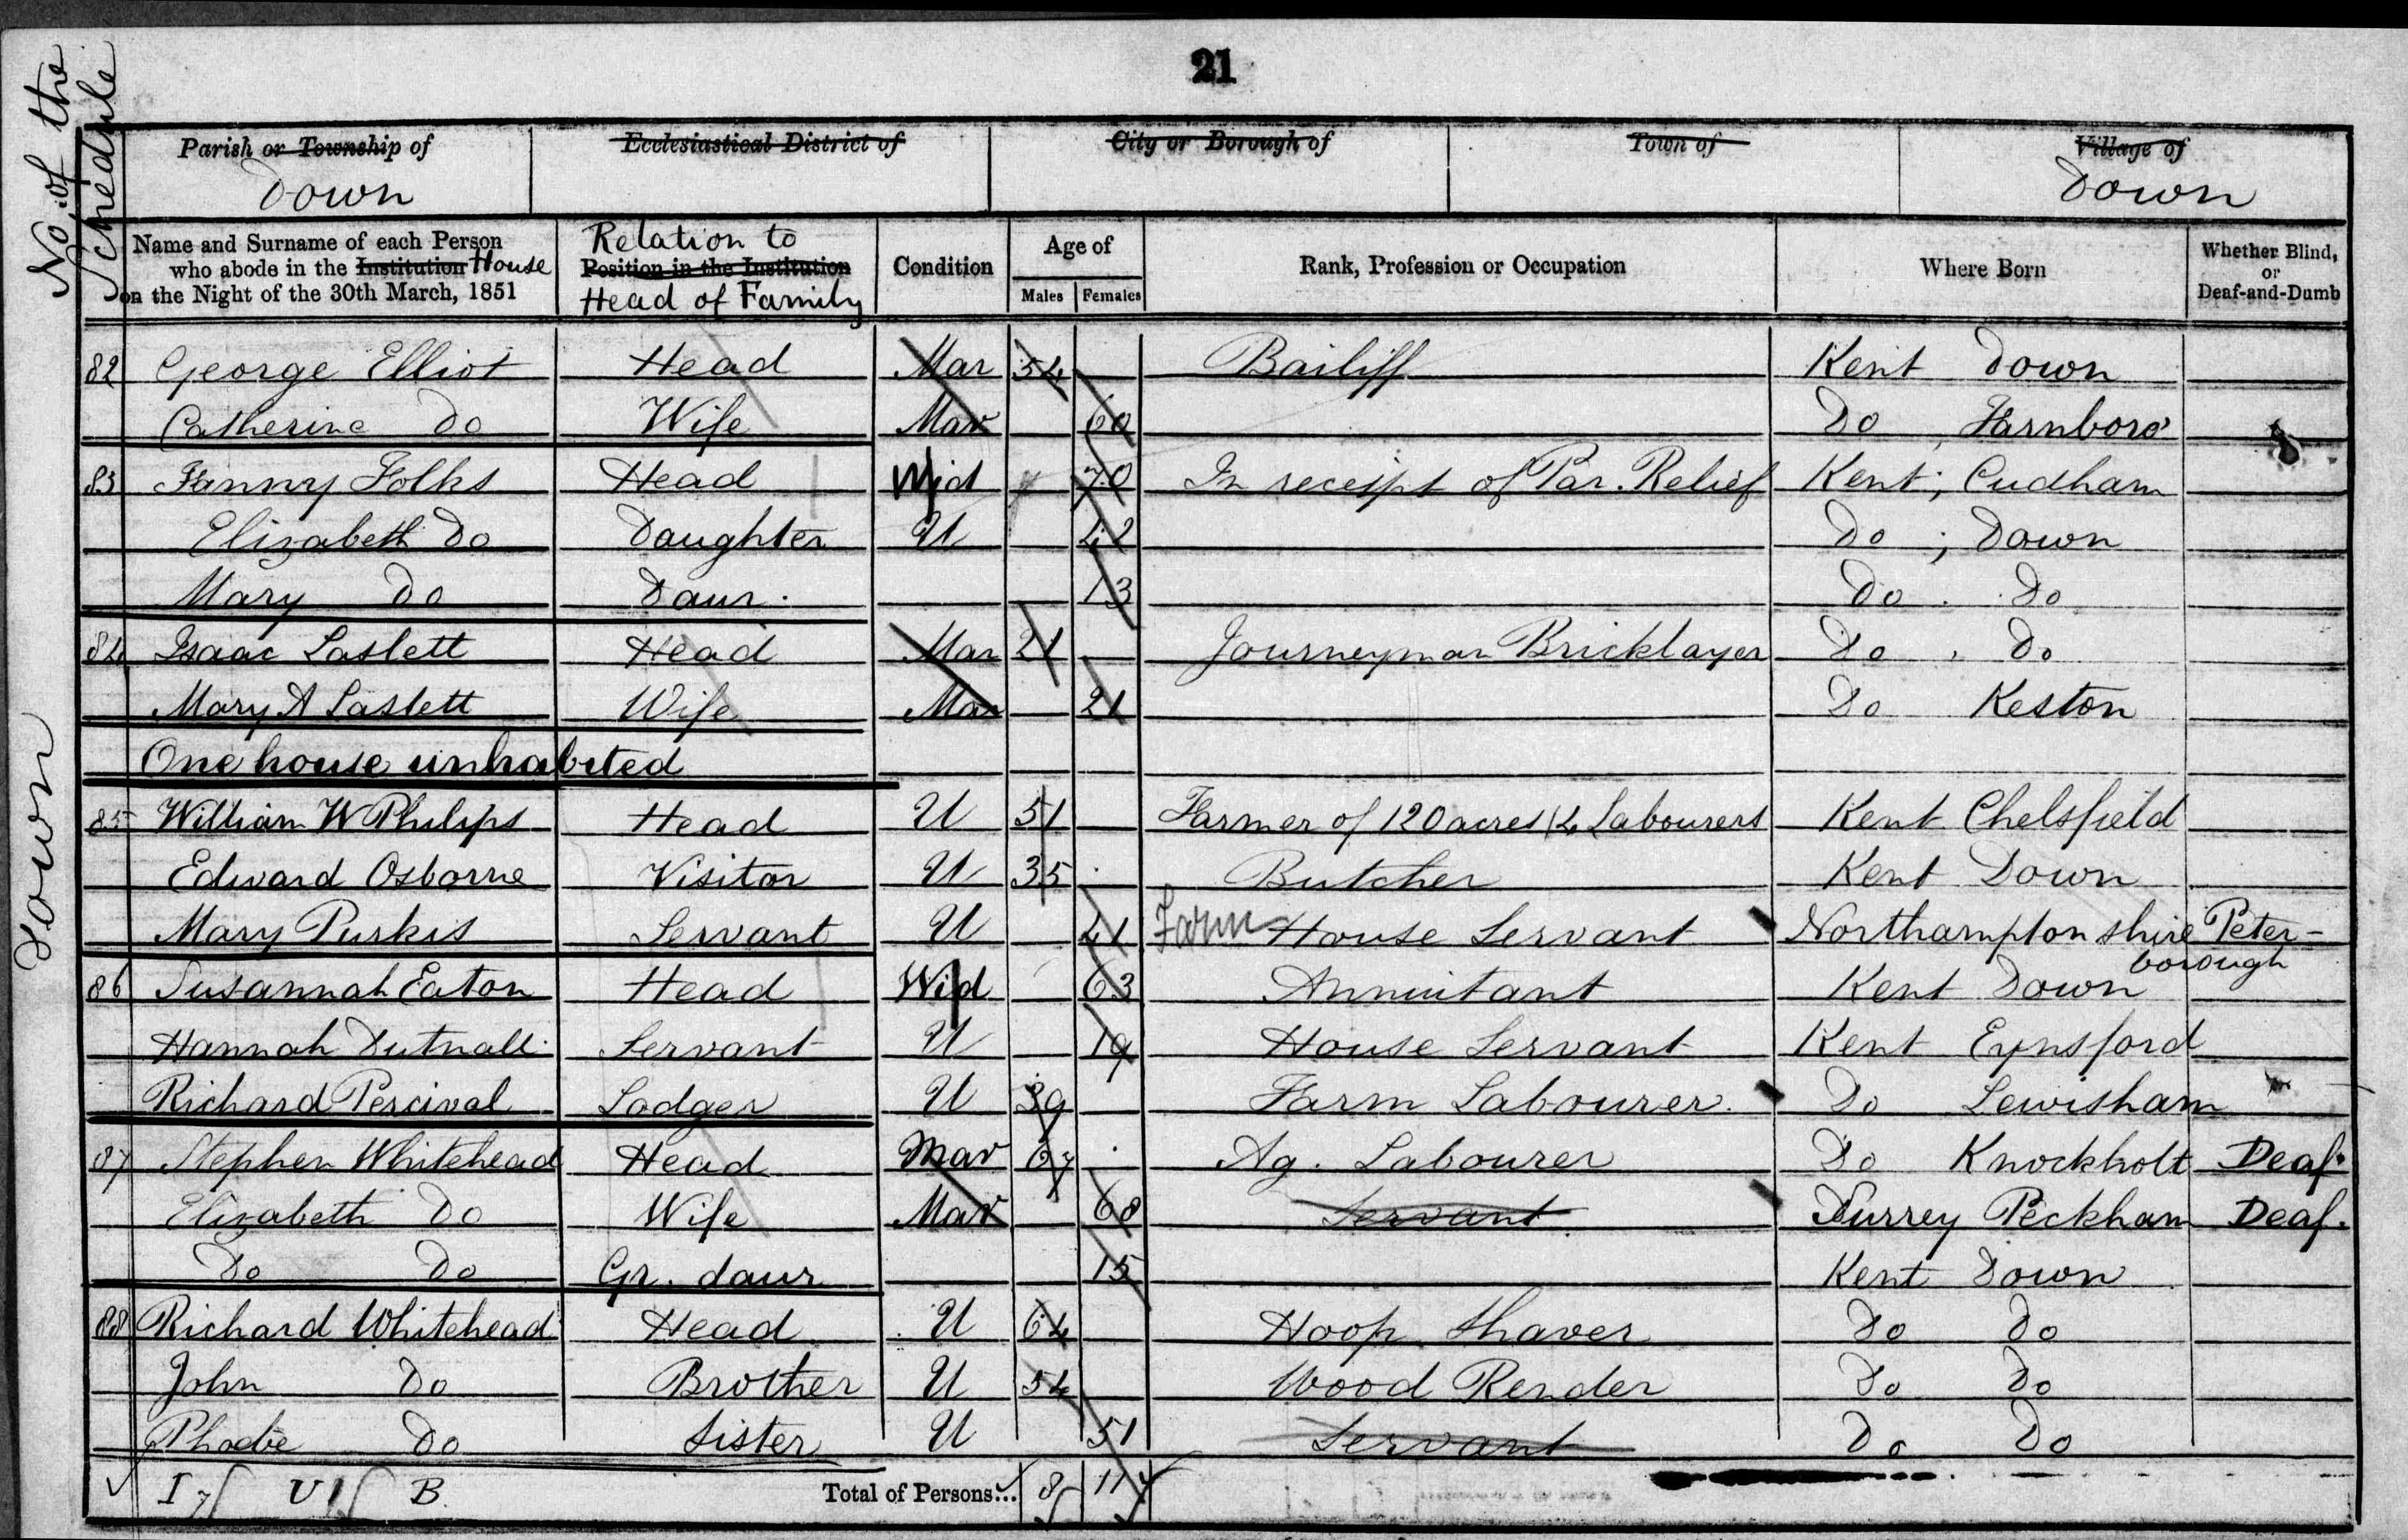 21
No. of the Schedule
Parish or Township of Down
Ecclesiastical District of
City or Borough of
Town of
Village of Down
Name and Surname of each Person who abode in the Institution House on the Night of the 30th March, 1851
Relation to Position in the Institution Head of Family
Condition
Age of Males Females
Rank, Profession or Occupation
Where Born
Whether Blind, or Deaf-and-Dumb
Down
82 George Elliot Head Mar 54 Bailiff Kent Down
Catherine Do Wife Mar 60 Do Farnboro'
83 Fanny Folks Head Wid 70 In receipt of Par. Relief Kent; Cudham
Elizabeth Do Daughter U 42 Do ; Down
Mary Do Daur. 13 Do Do
84 Isaac Laslett Head Mar 21 Journeyman Bricklayer Do Do
Mary A Laslett Wife Mar 21 Do Keston
One house uninhabited
85 William W Philips Head U 51 Farmer of 120 acres (4 Labourers Kent Chelsfield
Edward Osborne Visitor U 35 Butcher Kent Down
Mary Purkis Servant U 41 Farm House Servant Northamptonshire Peter-
borough
86 Susannah Eaton Head Wid 63 Annuitant Kent Down
Hannah Dutnall Servant U 19 House Servant Kent Eynsford
Richard Percival Lodger U 39 Farm Labourer. Do Lewisham
87 Stephen Whitehead Head Mar 67 Ag. Labourer Do Knockholt Deaf.
Elizabeth Do Wife Mar 68 Servant Surrey Peckham Deaf.
Do Do Gr. daur 15 Kent Down
88 Richard Whitehead Head U 64 Hoop Shaver Do Do
John Do Brother U 54 Wood Render Do Do
Phoebe Do Sister U 51 Servant Do Do
I 7 U 1 B Total of Persons... 8 11